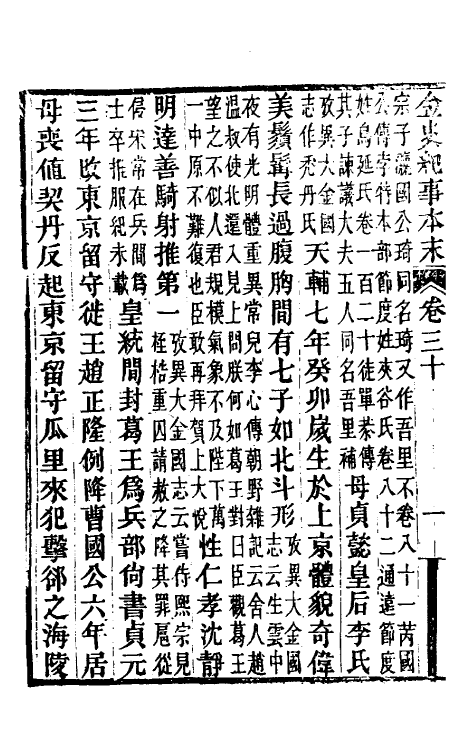 金史紀事本末 卷三十 一
宗子灋國公琦同名琦又作吾里不卷八十一芮國
公傳孛特本部節度姓夾谷氏卷八十二通遠節度
姓烏延氏卷一百二十徒單恭傳
其子諫議大夫五人同名吾里補母貞懿皇后李氏
攷異大金國
志作禿丹氏天輔七年癸卯歲生於上京體貌奇偉
美鬚髯長過腹胸間有七子如北斗形攷異大金國
志云生雲中
夜有光明體重異常兒李心傳朝野雜記云舍人趙
温叔使北還入見上問朕何如葛王對曰臣觀葛王
望之不似人君規模氣象不及陛下萬
一中原不難復也臣敢再拜賀上大悅性仁孝沈靜
明達善騎射推第一攷異大金國志云嘗侍熙宗見
桎梏重囚請赦之降其罪扈從
侵宋常在兵間爲
士卒推服紀未載皇統間封葛王爲兵部尙書貞元
三年改東京留守徙王趙正隆例降曹國公六年居
母喪値契丹反起東京留守瓜里來犯擊卻之海陵